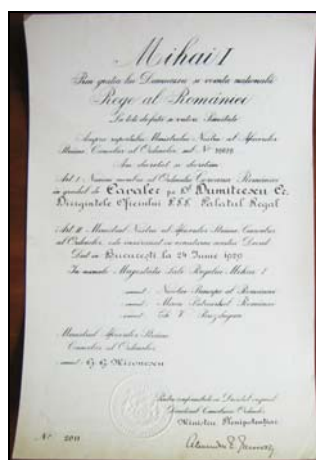 Mihai I
Prin gratia lui Dumnezeu si vointa nationala
Rege al României
La toti de fata si viitori, Sanatate
Asupra raportului Ministrului Nostru al Afacerilor
Straine, Cancelar al Ordinelor, sub Nº
Am decretat si decretam
Art. I Numim membru al Ordinului Coroana României
in gradul de Cavaler pe Dl Dumitrescu
Dirigintele Oficiului Palatul Regal
Art. II Ministrul Nostru al Afacerilor Straine, Cancelar
al Ordinelor, este insarcinat cu executarea acestui Decret
Dat in Bucuresti la 24 Iunie 1929
In numele Majestatii Sale Regelui Mihai I
Nicolae Principe al României
Miron Patriarhul României
Ministrul Afacerilor Straine
Cancelar al Ordinelor
G. G. Mironescu
Pentru conformitate cu Decretul original
Ministru Plenipotentiar
Nº 2011